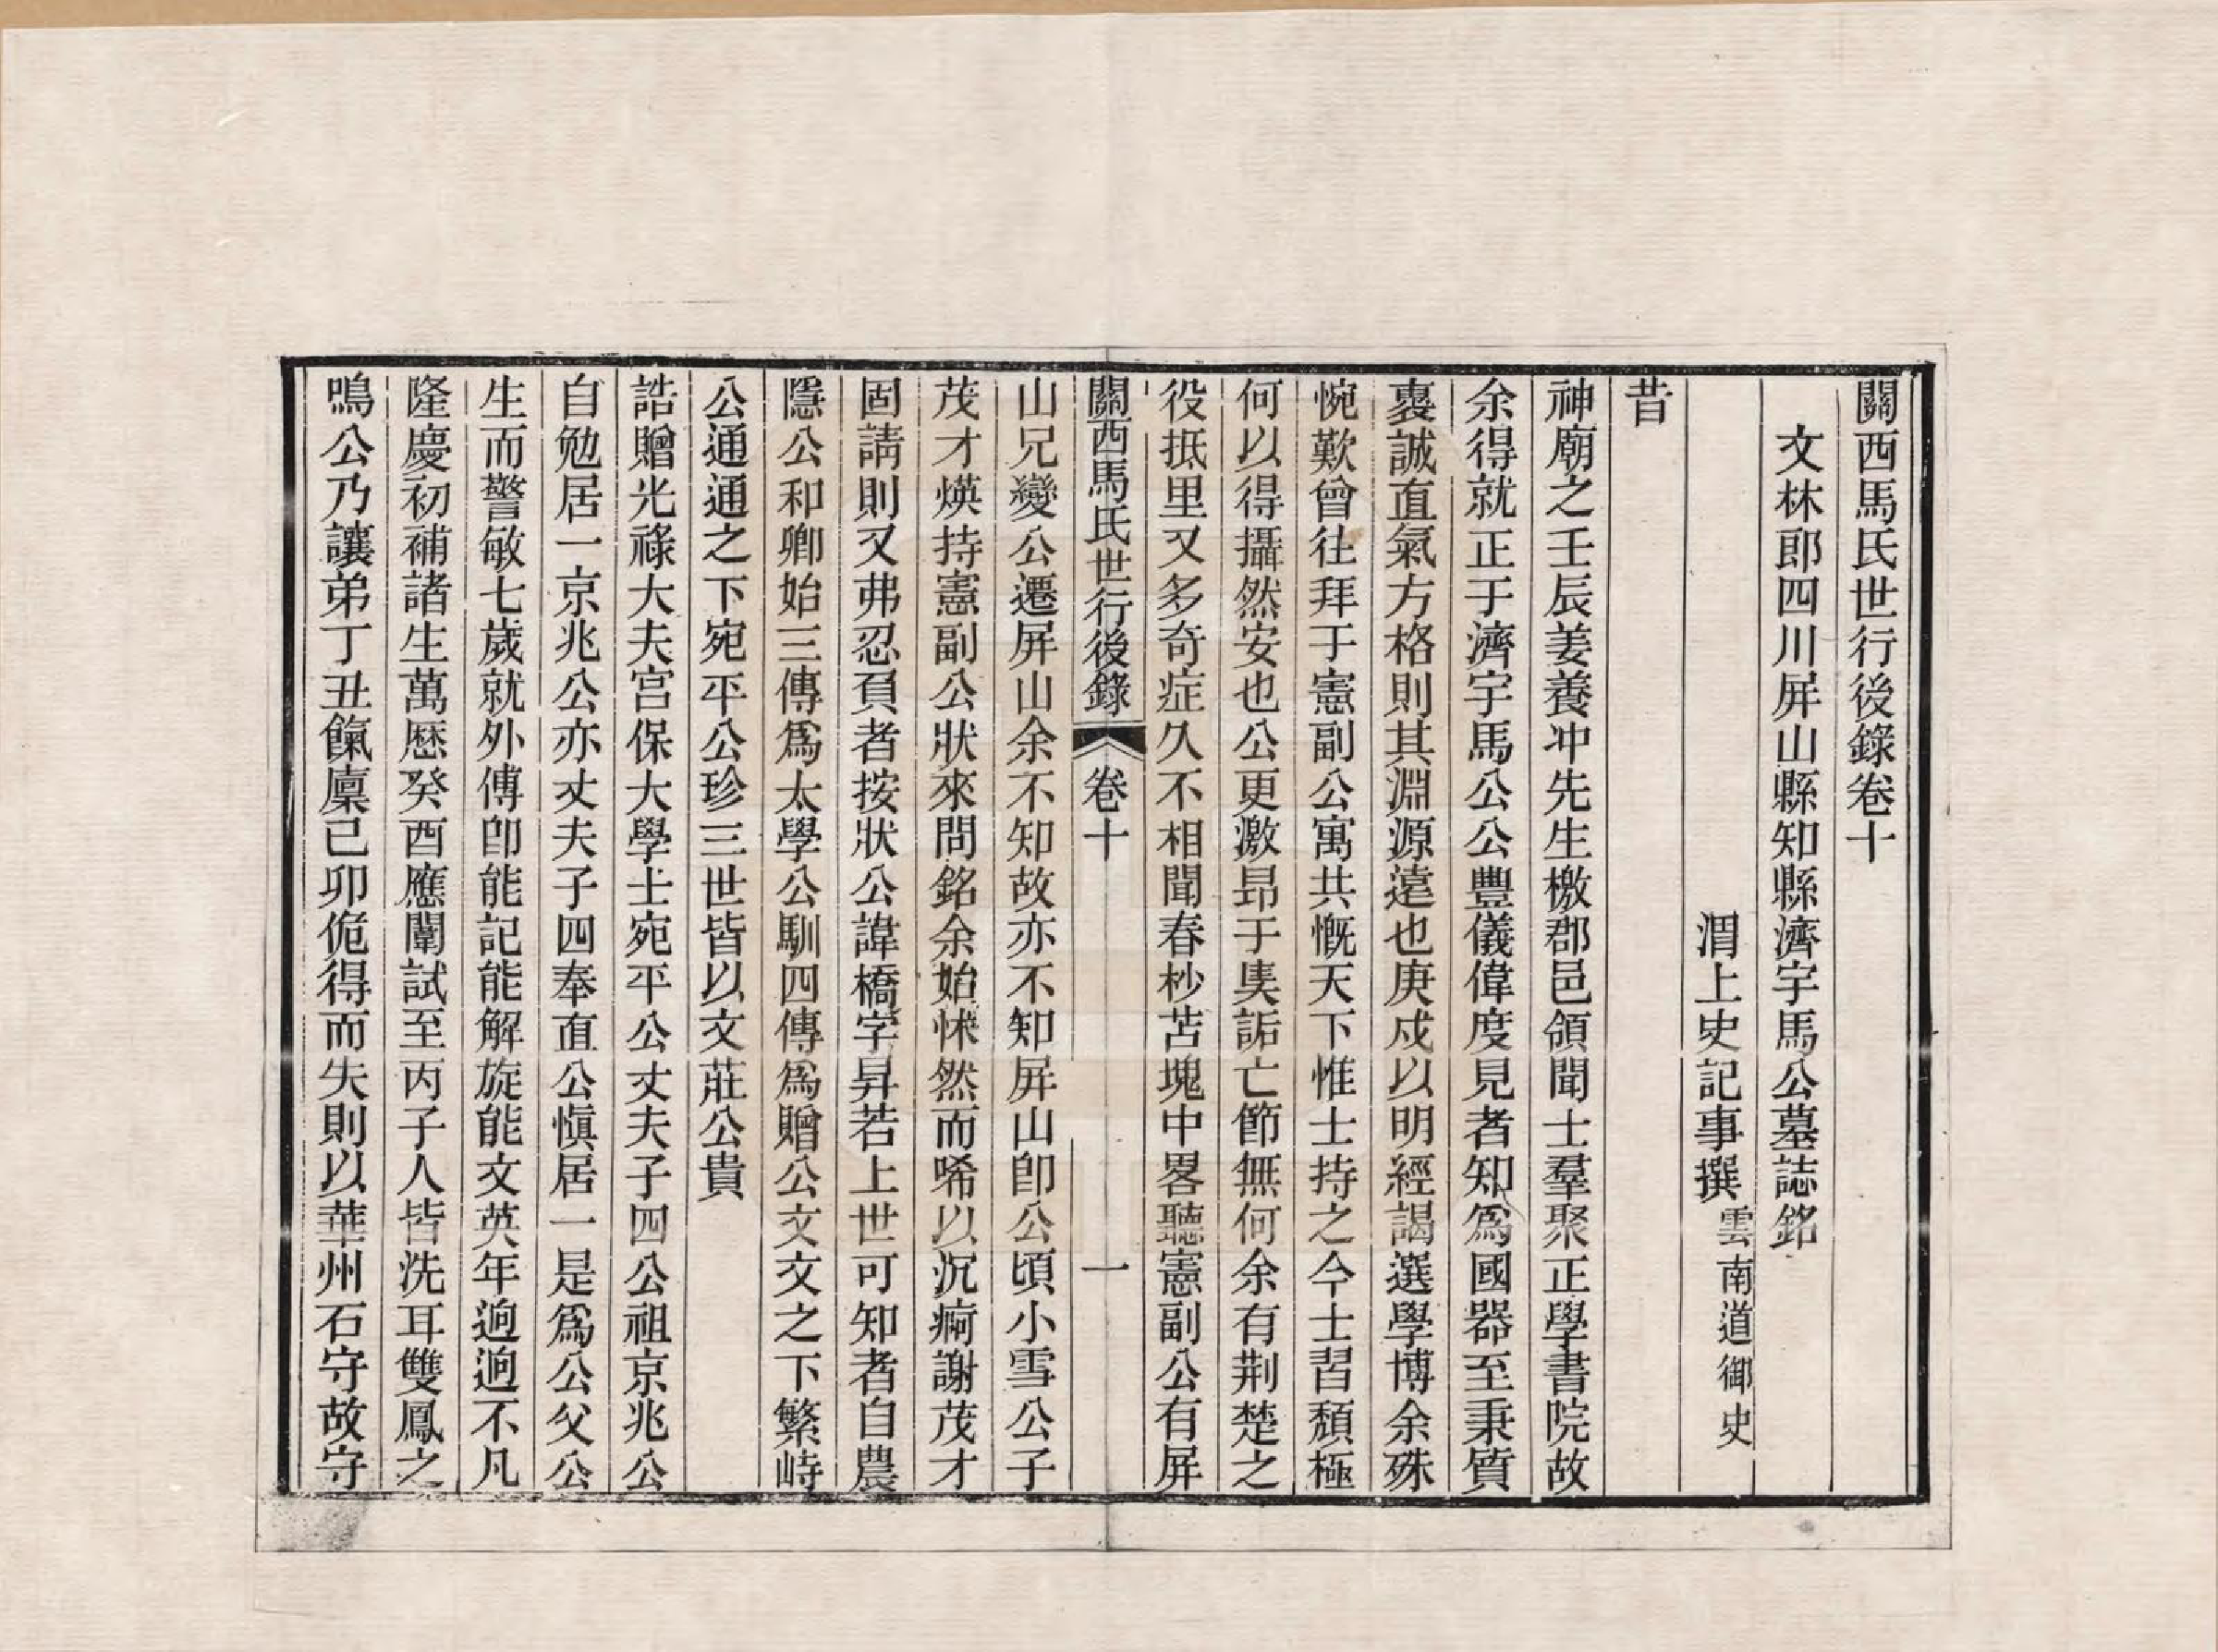 關西馬氏世行後錄卷十
文林郎四川屏山縣知縣濟宇馬公墓誌銘
渭上史記事撰雲南道御史
昔
神廟之壬辰姜養冲先生檄郡邑領聞士羣聚正學書院故
余得就正于濟宇馬公公豐儀偉度見者知爲國器至秉質
裏誠直氣方格則其淵源遠也庚戍以明經謁選學博余殊
惋歎曾往拜于憲副公寓共慨天下惟士持之今士習頹極
何以得攝然安也公更激昻于㚖詬亡節無何余有荆楚之
役抵里又多奇症久不相聞春杪苫塊中畧聽憲副公有屏
關西馬氏世行後錄 卷十 一
山兄變公遷屏山余不知故亦不知屏山卽公頃小雪公子
茂才煐持憲副公狀來問銘余始怵然而唏以沉痾謝茂才
固請則又弗忍頁者按狀公諱橋字昇若上世可知者自農
隱公和卿始三傳爲太學公馴四傳爲贈公文文之下繁峙
公通通之下宛平公珍三世皆以文莊公貴
誥贈光祿大夫宮保大學士宛平公丈夫子四公祖京兆公
自勉居一京兆公亦丈夫子四奉直公愼居一是爲公父公
生而警敏七歲就外傅卽能記能解旋能文英年逈逈不凡
隆慶初補諸生萬歷癸酉應闈試至丙子人皆洗耳雙鳳之
鳴公乃讓弟丁丑餼廩已卯佹得而失則以華州石守故守